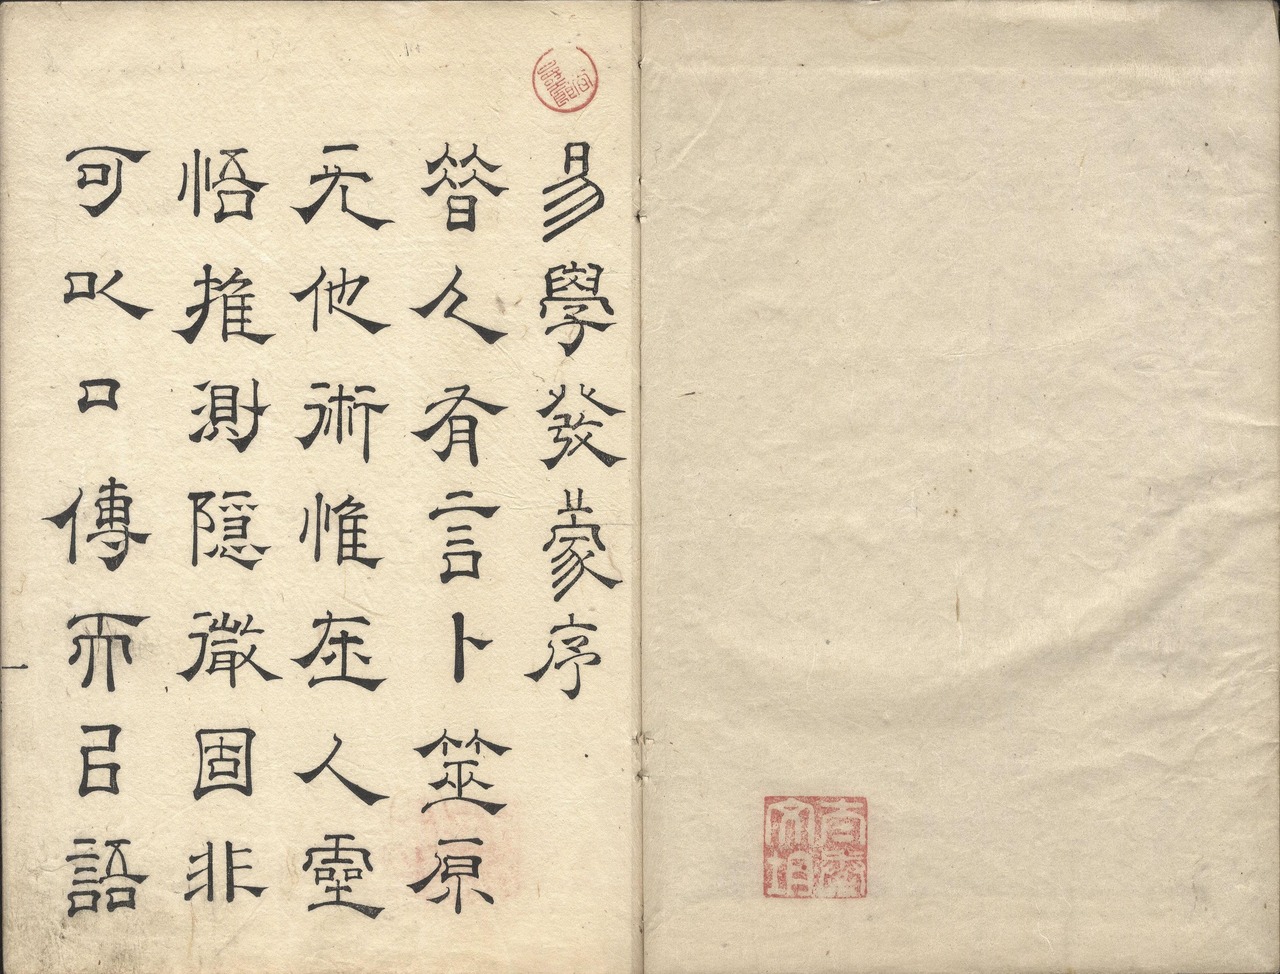 易學發蒙序
簮人有言卜筮原
无他術惟在人靈
悟推測隱微固非
可以口傳而㠯語